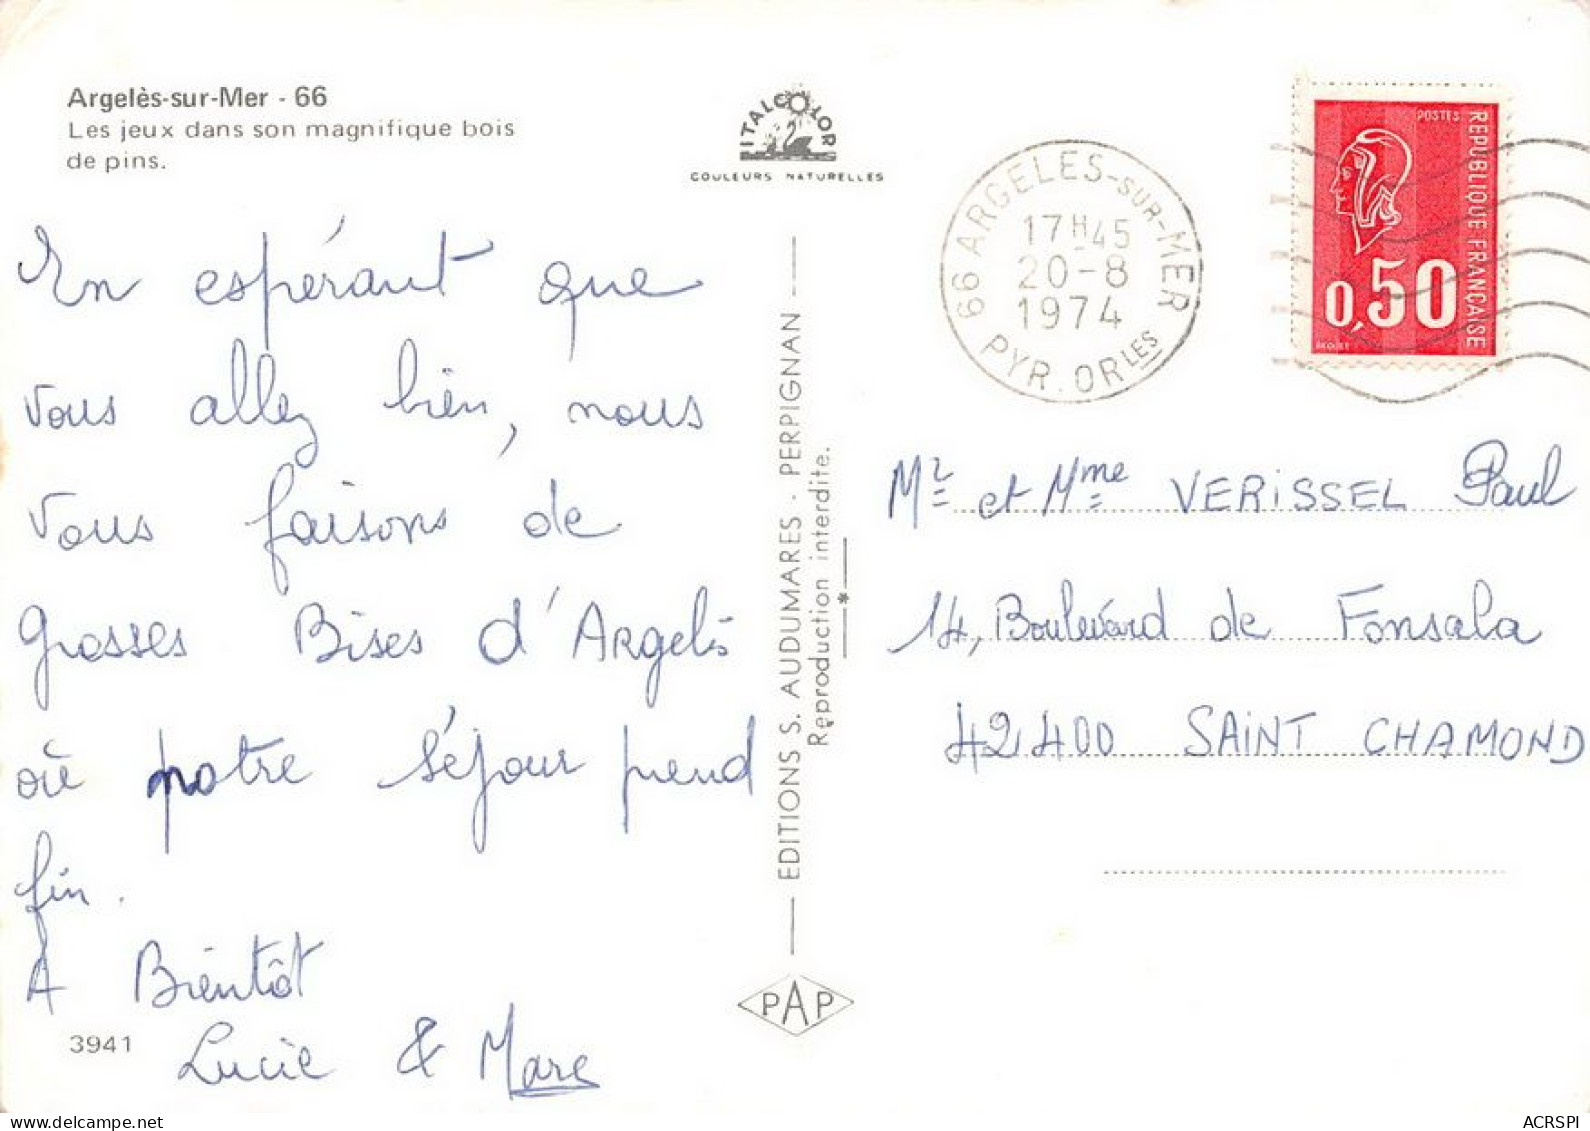 Argelès-sur-Mer - 66
Les jeux dans son magnifique bois
de pins.
ITALCOLOR
COULEURS NATURELLES
66 ARGELES-SUR-MER
17H45
20-8
1974
PYR. ORLES
POSTES
REPUBLIQUE FRANÇAISE
0,50
BEQUET
En espérant que
vous allez bien, nous
vous faisons de
grosses Bises d'Argelès
où notre séjour prend
fin.
A Bientôt
Lucie & Marc
3941
EDITIONS S. AUDUMARES - PERPIGNAN
Reproduction interdite.
*
PAP
Mr et Mme VERISSEL Paul
14, Boulevard de Fonsala
42400 SAINT CHAMOND
ACRSPI